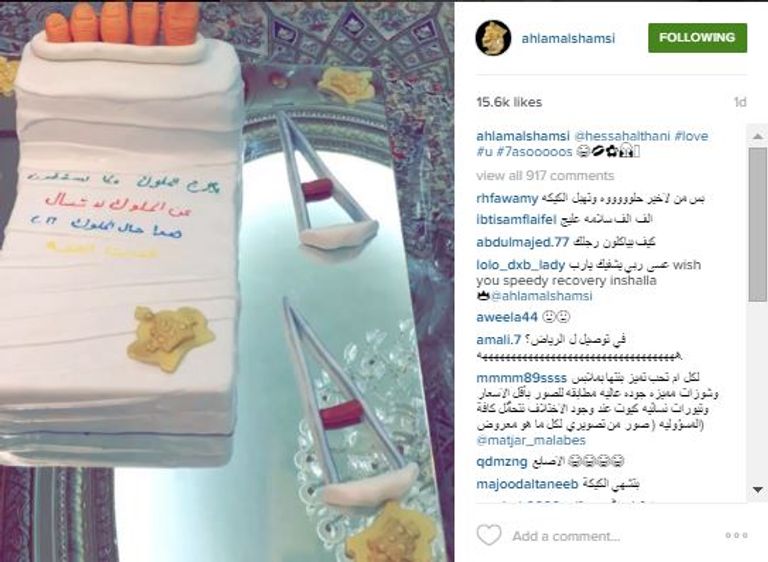 عن الملوك لا تسأل
ahlamalshamsi
FOLLOWING
15.6k likes
1d
ahlamalshamsi @hessahalthani #love
#u #7asooooos
view all 917 comments
rhfawamy بس من لاخير حلووووه وتهبل الكيكه
ibtisamflaifel الف الف سلامه عليج
abdulmajed.77 كيف بياكلون رجلك
lolo_dxb_lady عسى ربي يشفيك يارب wish
you speedy recovery inshalla
@ahlamalshamsi
aweela44
amali.7 في توصيل ل الرياض؟
mmmm89ssss لكل ام تحب تميز بنتها بملابس
وشوزات مميزه جوده عاليه مطابقه للصور بأقل الاسعار
وتيورات نسائيه كيوت عند وجود الاختلاف نتحمّل كافة
المسؤوليه ( صور من تصويري لكل ما هو معروض)
@matjar_malabes
qdmzng الاصابع 😂😂😂😂
majoodaltaneeb بتشهي الكيكة
Add a comment...